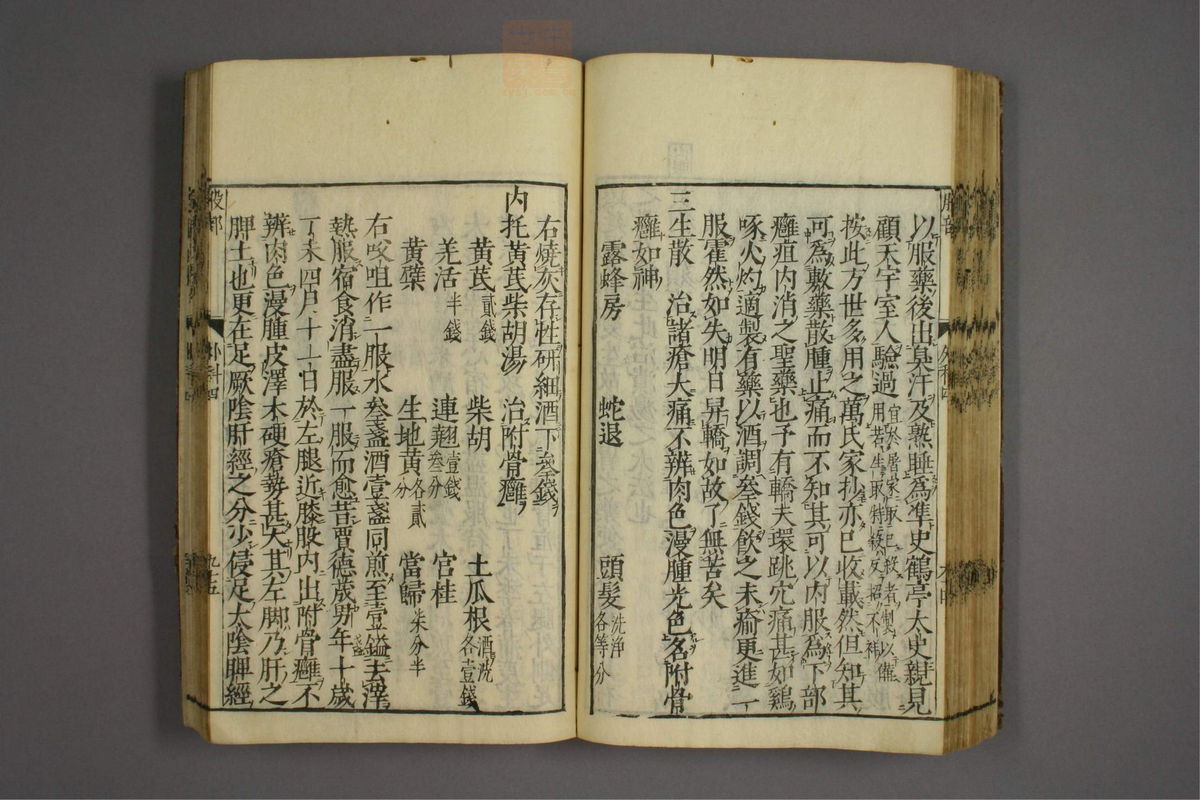 以服藥後出臭汗及熟睡為準史鶴亭太史親見
顧天宇室人驗過宜於屠家取已殺者製以備
用若生取特殺反招不祥
按此方世多用之萬氏家抄亦已收載然但知其
可為敷藥散腫止痛而不知其可以內服為下部
癰疽內消之聖藥也予有轎夫環跳穴痛甚如雞
啄火灼適製有藥以酒調叄錢飲之未瘉更進一
服霍然如失明日舁轎如故了無苦矣
三生散 治諸瘡大痛不辨肉色漫腫光色名附骨
癰如神
露蜂房 蛇退 頭髮洗淨
各等分
右燒灰存性研細酒下叄錢
內托黃芪柴胡湯 治附骨癰
黃芪貳錢 柴胡 土瓜根酒洗
各壹錢
羌活半錢 連翹壹錢
叄分 官桂
黃蘗 生地黃各貳
分 當歸柒分半
右㕮咀作一服水叄盞酒壹盞同煎至壹盞去滓
熱服宿食消盡服一服而愈昔賈德茂男年十歲
丁未四月十一日於左腿近膝股內出附骨癰不
辨肉色漫腫皮澤木硬瘡勢甚大其左脚乃肝之
脾土也更在足厥陰肝經之分少侵足太陰脾經
股部
外科四
九十五